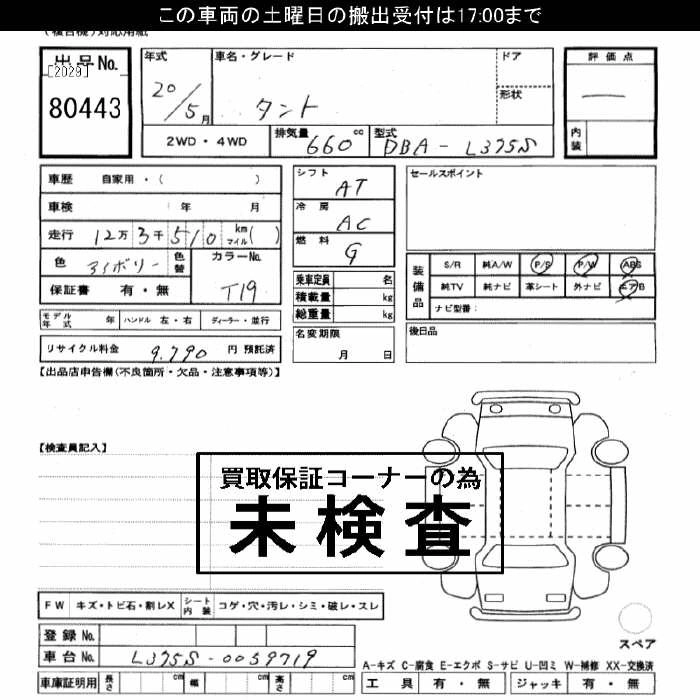 この車両の土曜日の搬出受付は17:00まで
(複合機)対応用紙
出品No.
[2029]
80443
年式
20/5月
車名・グレード
タント
ドア
形状
2WD・4WD
排気量
660cc
型式
DBA-L375S
評価点
内装
車歴 自家用・( )
車検 年 月
走行 12万3千510 km マイル( )
色
色替
カラーNo.
T19
保証書 有・無
モデル年式 年 ハンドル 左・右 ディーラー・並行
リサイクル料金 9.790 円 預託済
シフト AT
冷房 AC
燃料 G
乗車定員 名
積載量 kg
総重量 kg
名変期限
月 日
セールスポイント
装備品
S/R 純A/W P/S P/W ABS
純TV 純ナビ 革シート 外ナビ エアB
ナビ型番:
後日品
【出品店申告欄(不良箇所・欠品・注意事項等)】
【検査員記入】
買取保証コーナーの為
未検査
FW キズ・トビ石・割レX シート内装 コゲ・穴・汚レ・シミ・破レ・スレ
登録No.
車台No. L375S-0059719
車庫証明用 長さ cm 幅 cm 高さ cm
スペア
A-キズ C-腐食 E-エクボ S-サビ U-凹ミ W-補修 XX-交換済
工具 有・無 ジャッキ 有・無